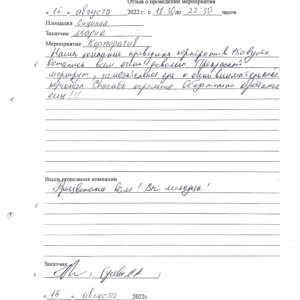 Отзыв о проведении мероприятия
« 15 » августа 2022 г. с 18:30 до 22:30 часов
Площадка Сицилия
Заказчик Мария
Мероприятие Корпоратив
Наша компания проводила корпоратив 15 августа.
Остались всем очень довольны. Прекрасный
маршрут, замечательная еда и очень внимательный
персонал. Спасибо огромное. Обязательно
ещё!!!
Ваши пожелания компании
Процветания вам! Вы молодцы!
Заказчик
« 15 » августа 2022г.